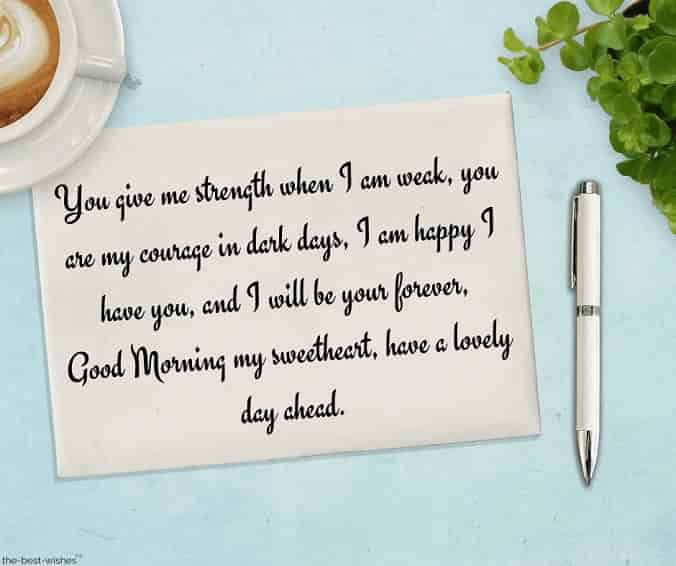 You give me strength when I am weak, you
are my courage in dark days, I am happy I
have you, and I will be your forever,
Good Morning my sweetheart, have a lovely
day ahead.
the-best-wishes™